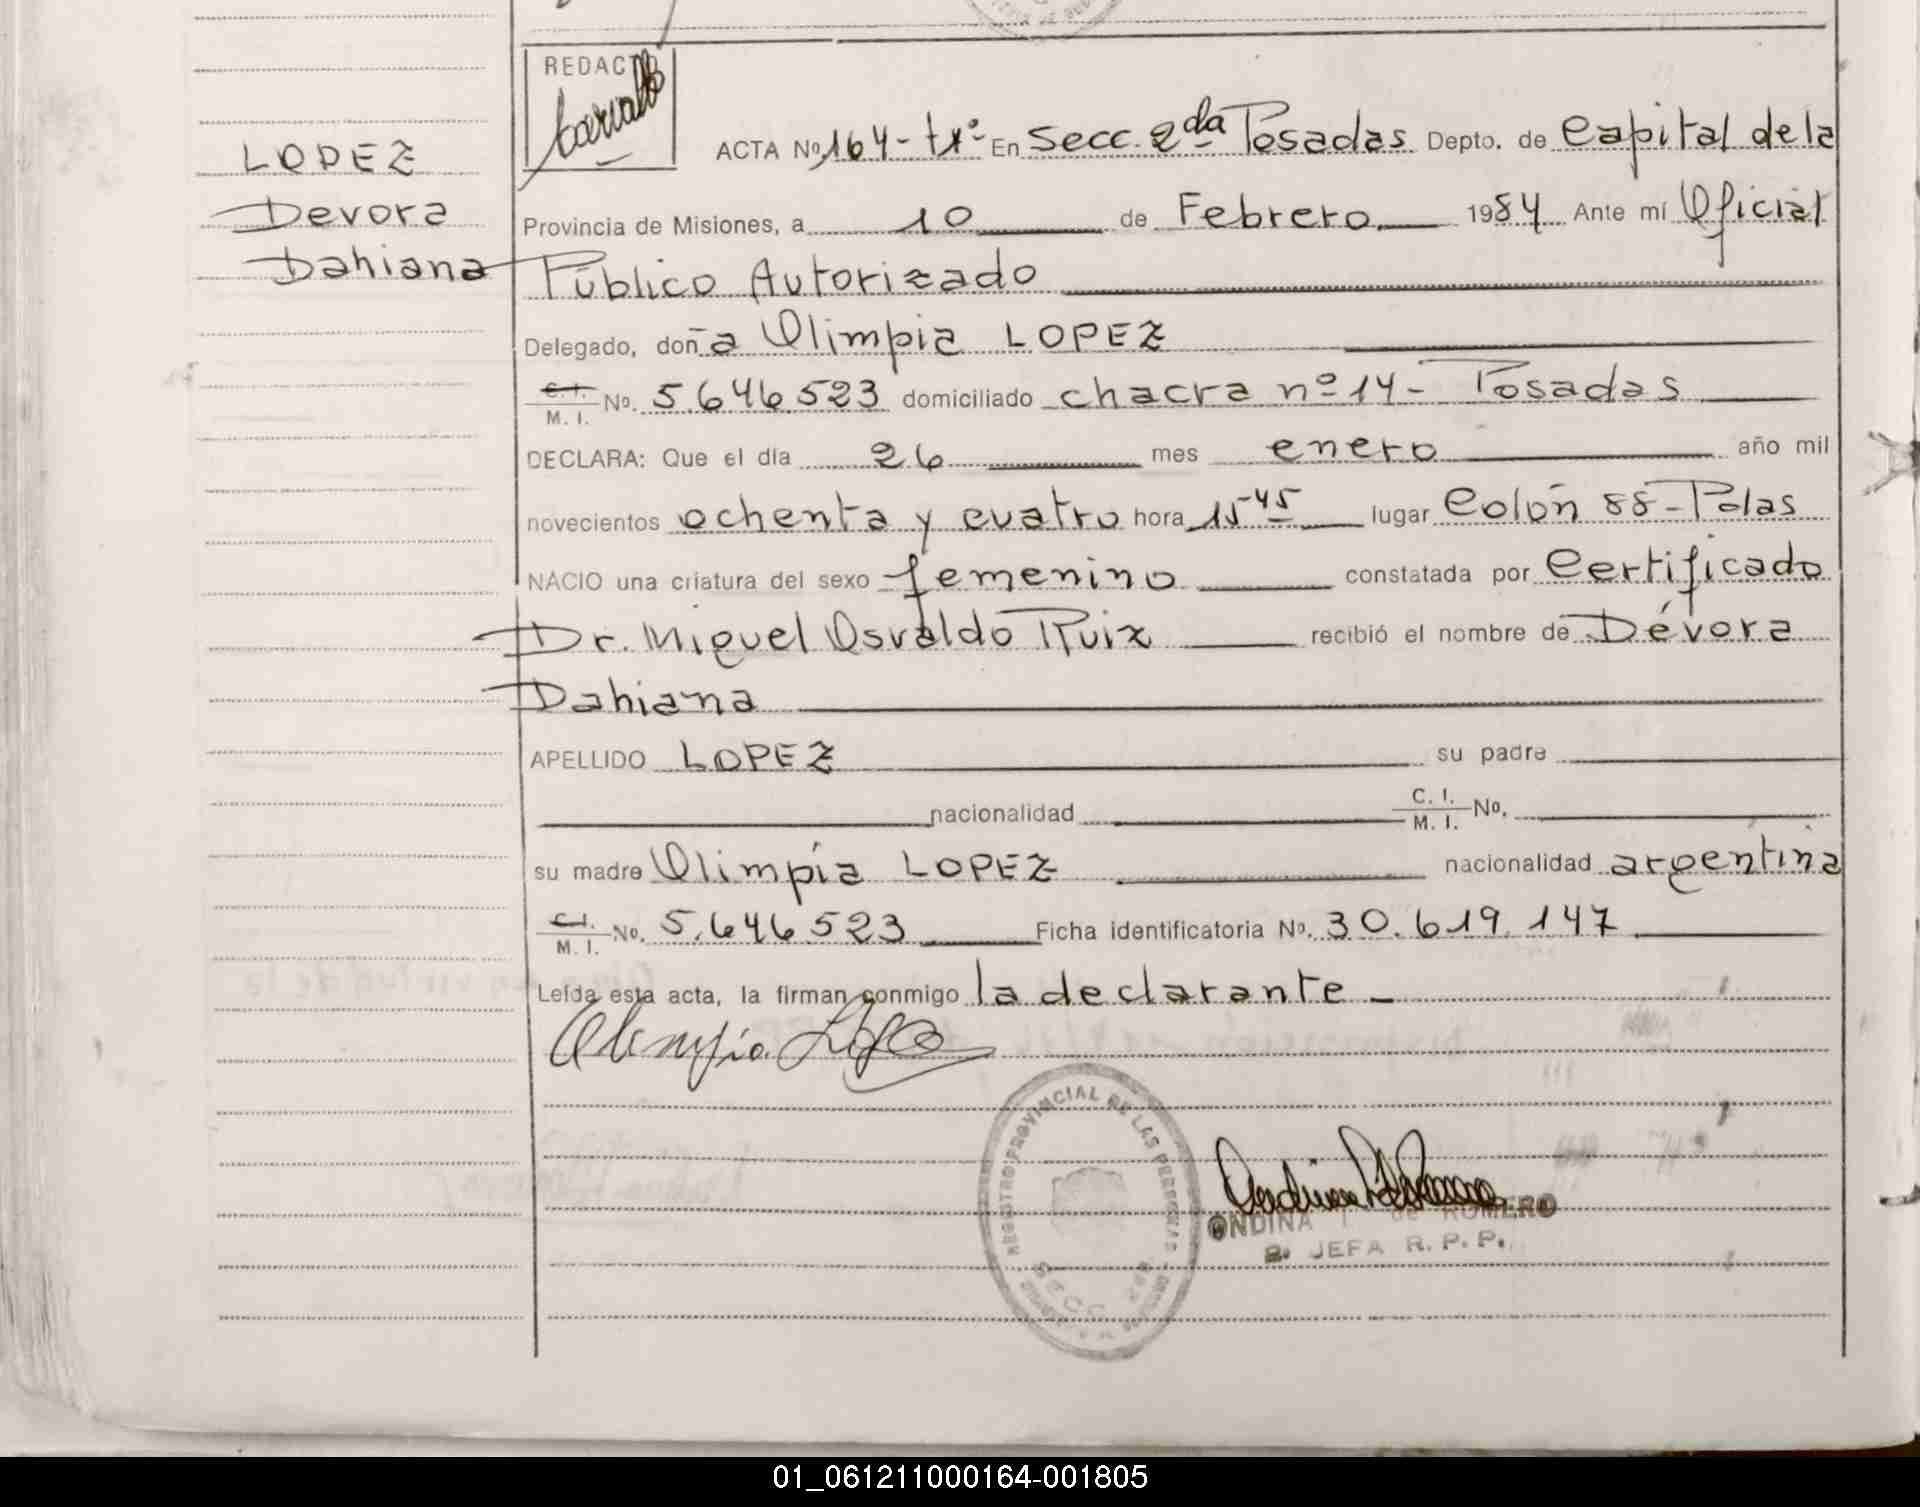 LOPEZ
Devora
Dahiana
REDACTO
Carvallo
ACTA Nº 164 - tº - En Secc. 2da Posadas Depto. de Capital de la
Provincia de Misiones, a 10 de Febrero 1984 Ante mí Oficial
Público Autorizado
Delegado, doña Olimpia LOPEZ
C. I. / M. I. No. 5.646.523 domiciliado chacra nº 14 - Posadas
DECLARA: Que el día 26 mes enero año mil
novecientos ochenta y cuatro hora 15-45 lugar Colón 88 - Pdas
NACIO una criatura del sexo femenino constatada por Certificado
Dr. Miguel Osvaldo Ruiz recibió el nombre de Dévora
Dahiana
APELLIDO LOPEZ su padre
nacionalidad C. I. / M. I. No.
su madre Olimpia LOPEZ nacionalidad argentina
C. I. / M. I. No. 5.646.523 Ficha identificatoria No. 30.619.147
Leída esta acta, la firman conmigo la declarante -
Olimpia López
REGISTRO PROVINCIAL DE LAS PERSONAS
SECC
ONDINA de ROMERO
2. JEFA R. P. P.
01_061211000164-001805